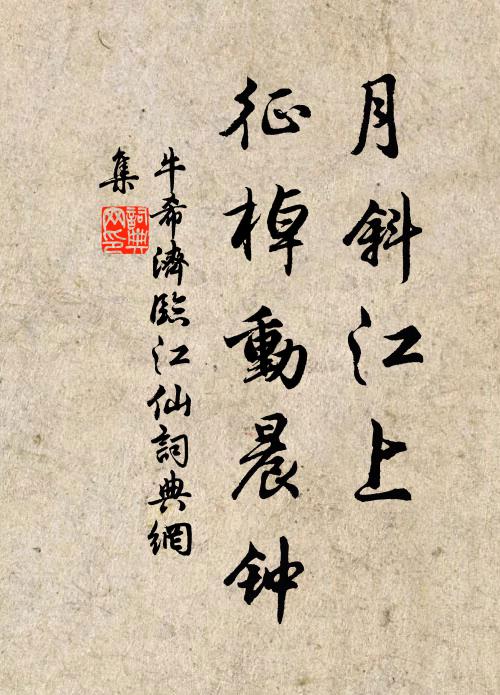 月斜江上
征棹動晨钟
牛希濟臨江仙詞典網
集
詞典网印